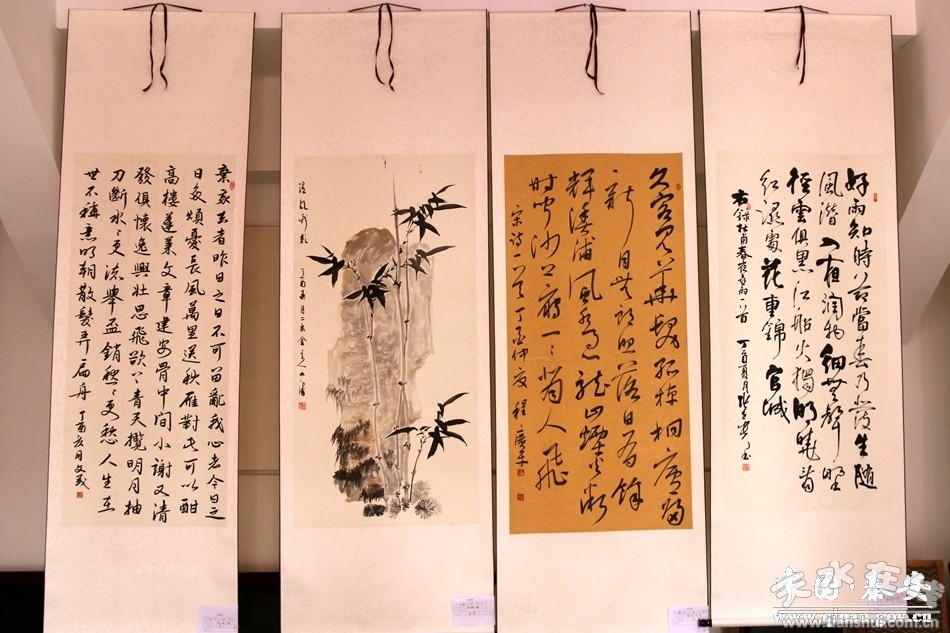 棄我去者昨日之日不可留亂我心者今日之
日多煩憂長風萬里送秋雁對此可以酣
高樓蓬萊文章建安骨中間小謝又清
發俱懷逸興壯思飛欲上青天攬明月抽
刀斷水水更流舉盃銷愁愁更愁人生在
世不稱意明朝散髮弄扁舟 丁酉
久客見華髮孤棹桐廬歸
新月無朗照落日有餘
輝漁浦風水急龍山煙火微
時聞沙上雁一一背人飛
宋詩一首 丁酉仲夏 程
好雨知時節當春乃發生隨
風潛入夜潤物細無聲野
徑雲俱黑江船火獨明曉看
紅濕處花重錦官城
右錄杜甫春夜喜雨一首 丁酉夏月
家园·秦安
www.tianshui.com.cn